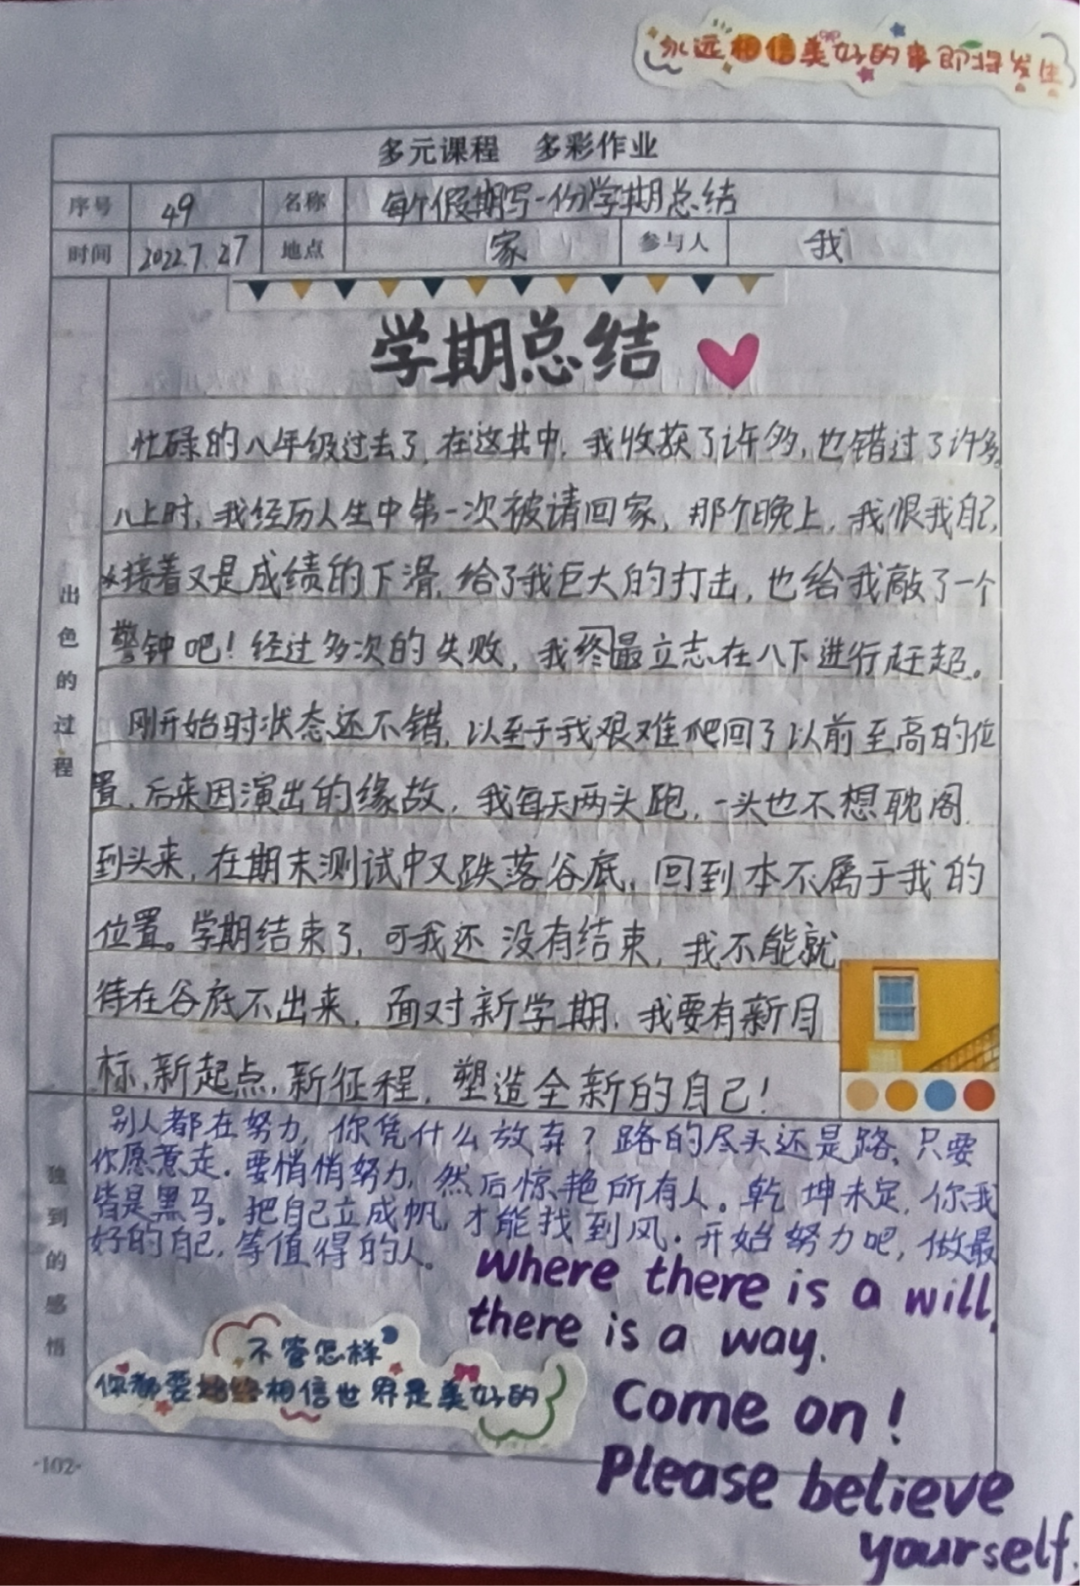 永远相信美好的事即将发生
多元课程 多彩作业
序号 49 名称 每个假期写一份学期总结
时间 2022.7.27 地点 家 参与人 我
学期总结
出色的过程
忙碌的八年级过去了,在这其中,我收获了许多,也错过了许多。
八上时,我经历人生中第一次被请回家,那个晚上,我恨我自己,
接着又是成绩的下滑,给了我巨大的打击,也给我敲了一个
警钟吧!经过多次的失败,我终最立志在八下进行赶超。
刚开始时状态还不错,以至于我艰难爬回了以前至高的位
置,后来因演出的缘故,我每天两头跑,一头也不想耽阁.
到头来,在期末测试中又跌落谷底,回到本不属于我的
位置。学期结束了,可我还没有结束,我不能就
待在谷底不出来,面对新学期,我要有新目
标,新起点,新征程,塑造全新的自己!
独到的感悟
别人都在努力,你凭什么放弃?路的尽头还是路,只要
你愿意走.要悄悄努力,然后惊艳所有人。乾坤未定,你我
皆是黑马。把自己立成帆,才能找到风.开始努力吧,做最
好的自己,等值得的人。
Where there is a will,
there is a way.
不管怎样
你都要始终相信世界是美好的
Come on!
Please believe
yourself.
·102·